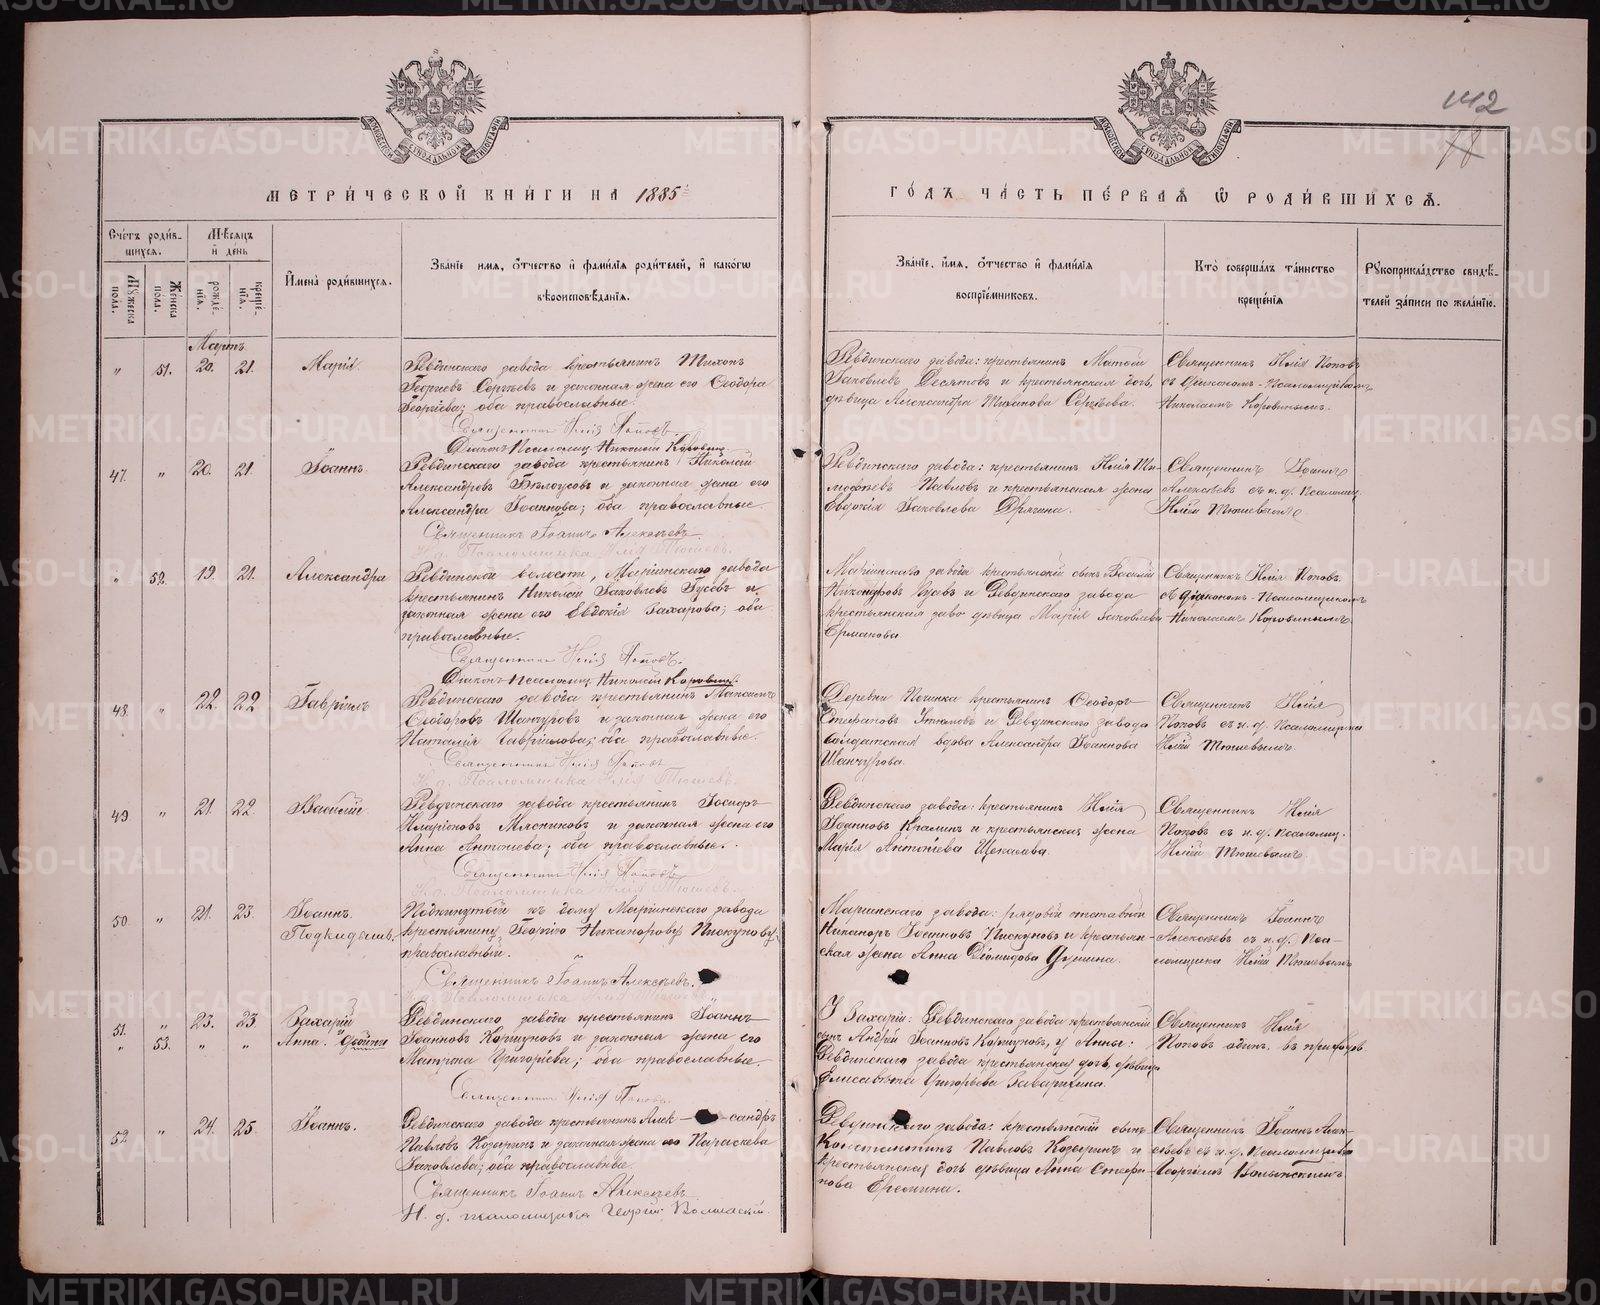 142
МЕТРИ́ЧЕСКОЙ КНИ́ГИ НА 1885
ГО́ДЪ ЧА́СТЬ ПЕ́РВАѦ Ѡ РОДИ́ВШИХСѦ.
Сче́тъ роди́вшихсѧ.
Мꙋ́жеска пола.
Же́нска пола.
Мѣ́сѧцъ и де́нь
рожде́нїѧ.
креще́нїѧ.
И҆мена̀ роди́вшихсѧ.
Зва́нїе имѧ, ѻ҆́тчество и҆ фамилїѧ роди́телей, и҆ како́гѡ
вѣроисповѣ́данїѧ.
Зва́нїе, и҆́мѧ, ѻ҆́тчество и҆ фами́лїѧ
воспрїе́мниковъ.
Кто̀ соверша́лъ та́инство
креще́нїѧ
Рꙋкоприкла́дство свидѣ́-
телей за́писи по жела́нїю.
Мартъ
" 51. 20. 21. Марія.
Ревдинскаго завода крестьянинъ Тихонъ
Георгіевъ Сергѣевъ и законная жена его Ѳеодора
Георгіева; оба православные.
Священникъ Илія Поповъ.
Діаконъ-Псаломщ. Николай Коровинъ
Ревдинскаго завода: крестьянинъ Матѳій
Іаковлевъ Десятовъ и крестьянская дочь,
дѣвица Александра Тихонова Сергѣева.
Священникъ Илія Поповъ
съ діакономъ-псаломщикомъ
Николаемъ Коровинымъ.
47. " 20. 21 Іоаннъ.
Ревдинскаго завода крестьянинъ Николай
Александровъ Бѣлоусовъ и законная жена его
Александра Іоаннова; оба православные.
Священникъ Іоаннъ Алексѣевъ.
И. д. Псаломщика Илія Тюшевъ.
Ревдинскаго завода: крестьянинъ Илія Ти-
моѳеевъ Павловъ и крестьянская жена
Евдокія Іаковлева Дрягина.
Священникъ Іоаннъ
Алексѣевъ съ и. д. псаломщ.
Иліей Тюшевымъ
" 52. 19. 21. Александра
Ревдинской волости, Маріинскаго завода
крестьянинъ Николай Іаковлевъ Гусевъ и
законная жена его Евдокія Захарова; оба
православные.
Священникъ Илія Поповъ.
Діаконъ-псаломщ. Николай Коровинъ.
Маріинскаго завода крестьянскій сынъ Василій
Никоноровъ Гусевъ и Ревдинскаго завода
крестьянская дѣвица Марія Іаковлева
Ермакова
Священникъ Илія Поповъ
съ діакономъ-псаломщикомъ
Николаемъ Коровинымъ
48. " 22. 22 Гавріилъ
Ревдинскаго завода крестьянинъ Максимъ
Ѳеодоровъ Шанчуровъ и законная жена его
Наталія Гавріилова; оба православные.
Священникъ Илія Поповъ
И. д. Псаломщика Илія Тюшевъ.
Деревни Починка крестьянинъ Ѳеодоръ
Стефановъ и Ревдинскаго завода
солдатская вдова Александра Іоаннова
Шанчурова.
Священникъ Илія
Поповъ съ и. д. псаломщика
Иліей Тюшевымъ.
49 " 21. 22. Василій
Ревдинскаго завода крестьянинъ Іосифъ
Иларіоновъ Мясниковъ и законная жена его
Анна Антоніева; оба православные.
Священникъ Илія Поповъ
И. д. Псаломщика Илія Тюшевъ.
Ревдинскаго завода: крестьянинъ Илія
Іоанновъ Краминъ и крестьянская жена
Марія Антоніева Щекалева.
Священникъ Илія
Поповъ съ и. д. псаломщ.
Иліей Тюшевымъ.
50 " 21. 23. Іоаннъ.
Подкидышъ.
Подкинутый къ дому Маріинскаго завода
крестьянину Георгію Никанорову Пискунову
православный.
Священникъ Іоаннъ Алексѣевъ.
И. д. Псаломщика Илія Тюшевъ
Маріинскаго завода: рядовой отставной
Никаноръ Іоанновъ Пискуновъ и крестьян-
ская жена Анна Діомидова.
Священникъ Іоаннъ
Алексѣевъ съ и. д. пса-
ломщика Иліей Тюшевымъ
51. " 23. 23 Захарій
" 53. " " Анна. двойни
Ревдинскаго завода крестьянинъ Іоаннъ
Іоанновъ Коршуновъ и законная жена его
Матрона Григоріева; оба православные.
Священникъ Илія Поповъ.
У Захарія: Ревдинскаго завода крестьянскій
сынъ Андрей Іоанновъ Коршуновъ, у Анны:
Ревдинскаго завода крестьянская дочь, дѣвица
Елисавета Григорьева Заварихина.
Священникъ Илія
Поповъ одинъ въ приходѣ
52 " 24. 25. Іоаннъ.
Ревдинскаго завода крестьянинъ Алек-сандръ
Павловъ Козыринъ и законная жена его Параскева
Іаковлева; оба православные.
Священникъ Іоаннъ Алексѣевъ
И. д. псаломщика Георгій Волынскій.
Ревдинскаго завода: крестьянскій сынъ
Константинъ Павловъ Козыринъ и
крестьянская дочь дѣвица Анна Стефа-
нова Еремина.
Священникъ Іоаннъ Алек-
сѣевъ съ и. д. псаломщика
Георгіемъ Волынскимъ
METRIKI.GASO-URAL.RU